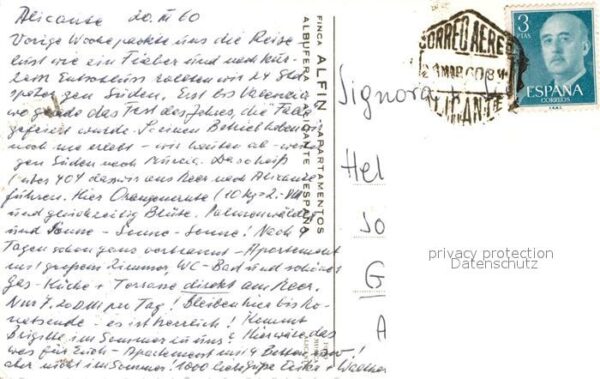 Alicante 20. III 60
Vorige Woche packte uns die Reise
lust wie ein Fieber und nach kur-
zem Entschluss rollten wir 24 Std.
später gen Süden. Erst bis Valencia
wo gerade das Fest des Jahres, die Fallas
gefeiert wurde. So einen Betrieb haben wir
noch nie erlebt - wir hauten ab - wei-
gen Süden nach Murcia. Da so heiß
(über 40°) dass wir ans Meer nach Alicante
führen. Hier Orangenernte (10 kg = 2.- DM)
und gleichzeitig Blüte. Palmenwälder
und Sonne - Sonne - Sonne! Nach
Tagen schon ganz verbrannt - Apartement
mit großem Zimmer, WC - Bad und schöner
Gas-Küche + Terrasse direkt am Meer.
Nur 7.20 DM per Tag! Bleiben hier bis
- es ist herrlich! Kommt
Brigitte im Sommer zu uns? Hier wäre das
was für Euch - Apartement mit 4 Betten
aber nicht im Sommer! 1000 liebe Grüße
FINCA ALFIN - APARTAMENTOS
ALBUFERA ALICANTE (ESPAÑA)
CORREO AEREO
ALICANTE
3
PTAS
ESPAÑA
CORREOS
Signora
Hel
So
G
A
privacy protection
Datenschutz